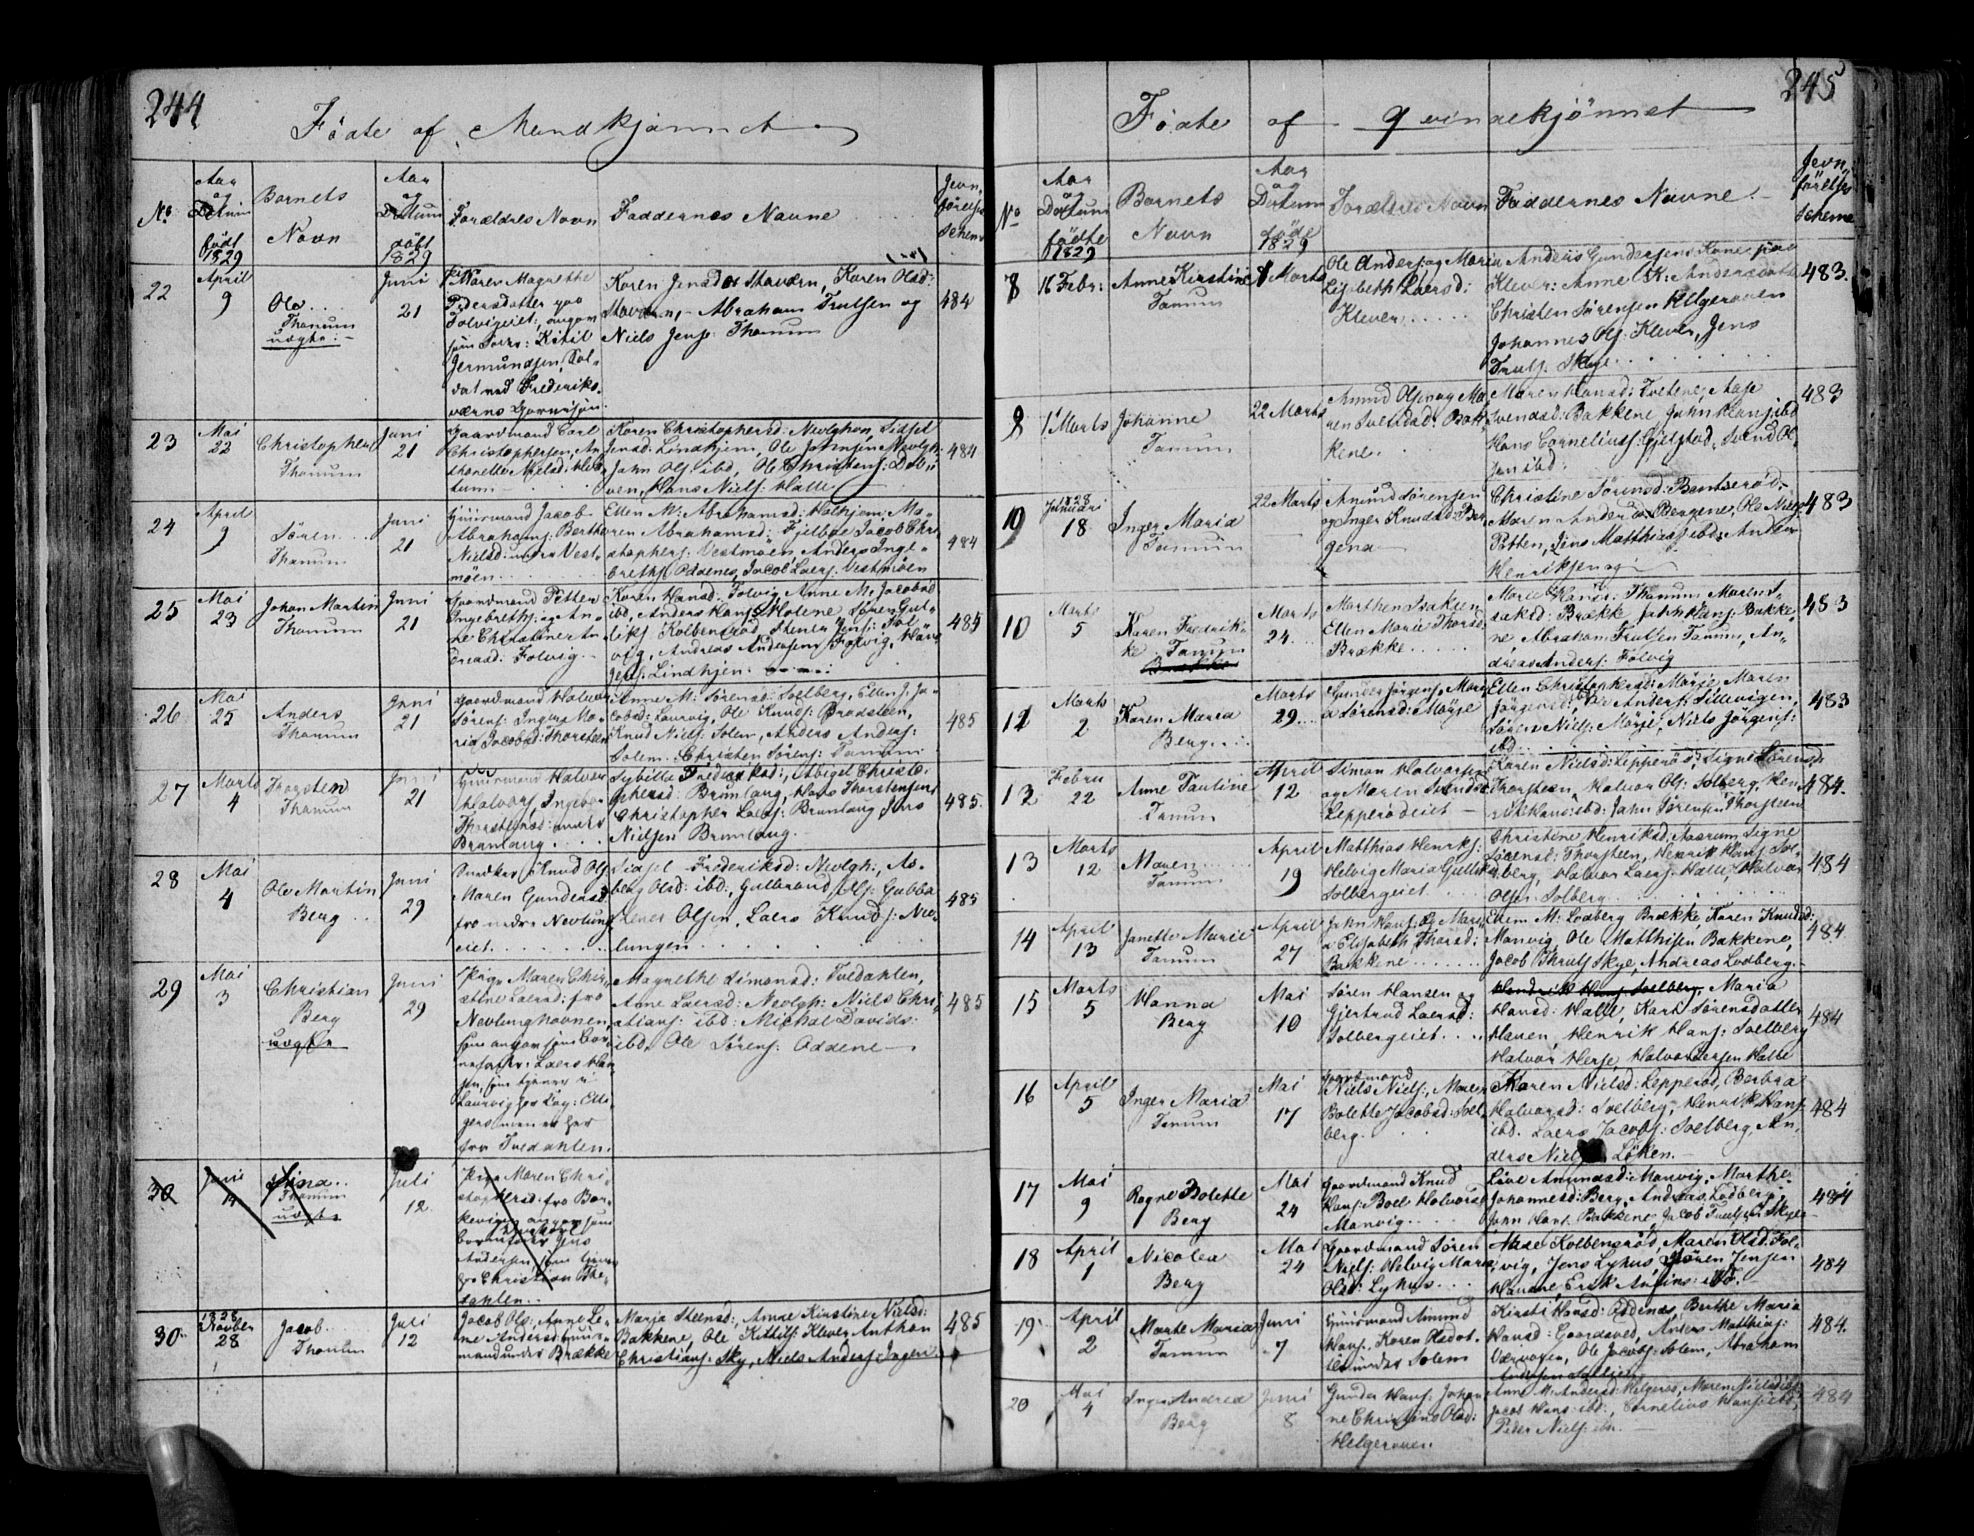 244
Födte af Mandkjönnet
No
Aar og Datum födt 1829
Barnets Navn
Aar og Datum döbt 1829
Forældres Navn
Faddernes Navne
Jevn förelses Schema
22
April 9
Ole
Thanum
uægte
Juni 21
Maren Magrethe
Pedersdatter paa
Folvigeiet, angav
som Fader: Kitil
Jermundsen, Sol-
dat ved Frederiks-
værns Garnison
Karen Jensd. Staværn, Karen Olsd:
Staværn, Abraham Trulsen og
Niels Jens: Thanum
484
23
Mai 22
Christopher
Thanum
Juni 21
Gaardmand Carl
Christophersen, An
Karen Christophersd: Nevlghavn, Sidsel
Jensd: Lindhjem, Ole Johnsen Nevlgh:
John Ols: ibd, Ole Christens:
ven, Hans Niels: Halle
484
24
April 9
Sören
Thanum
Juni 21
Huusmand Jacob
Abrahams: Berthe
Nielsd: under Vest-
möen
Ellen M: Abrahamsd: Holhjem, Ma-
ren Abrahamsd: Fjelboe, Jacob Chri-
stophers: Vestmöen, Anders Inge-
breths: Oddenes, Jacob Laers: Vestmöen
484
25
Mai 23
Johan Martin
Thanum
Juni 21
Gaardmand Petter
Ingebreths: og An-
ne Christine An-
dreasd: Folvig
Karen Hansd: Folvig, Anne M: Jacobsd
ibd, Anders Hans: Holene, Sören Gul-
liks: Kolbensröd, Stener Jens: Fol-
vig, Andreas Andersen Folvig, Hans
Jens: Lindhjem
485
26
Mai 25
Anders
Thanum
Juni 21
Gaardmand Halvor
Sörens: Inger Ma-
ria Jacobsd: Thorsteen
Anne M: Sörensd: Solberg, Ellen J. Ja-
cobsd: Laurvig, Ole Knuds: Bradsteen,
Knud Niels: Solem, Anders Anders:
Solem, Christen Sörens: Tanum
485
27
Marts 4
Thorsten
Thanum
Juni 21
Huusmand Halvor
Halvors: Ingeborg
Thorstensd: under
Brunlaug
Sybille Frederiksd:, Abigel Christo-
phersd: Brunlaug, Hans Thorstensen,
Christopher Laers: Brunlaug, Jens
Nielsen Brunlaug
485.
28
Mai 4
Ole Martin
Berg
Juni 29
Snedker Knud Ols:
Maren Gundersd
fra nedre Nevlung
eiet
Sidsel Frederiksd: Nevlgh:, As-
berg Olsd: ibd:, Gulbrand Ols: Gubba
Stener Olsen, Laers Knuds: Nev-
lungen
485
29
Mai 3
Christian
Berg
uægte
Juni 29
Pige Maren Chri-
stine Laersd: fra
Nevlunghavnen,
som angav som Bar-
nefader: Laers Han-
sen, som tjener i
Laurvig
fra Tvedahlen
Magrethe Simonsd: Tvedahlen,
Anne Laersd: Nevlgh: Niels Chri-
stians: ibd: Michal Davids:
ibd. Ole Sörens: Oddene
485
30
Juni 14
Sina
Thanum
uægte
Juli 12
Pige Maren Chri-
stophersd: fra Bar-
kevigen angav som
barnefader Jens
Andersen, som tjener
hos Christian Tve-
dahlen
30
1828
Novber 28
Jacob
Thanum
Juli 12
Jacob Ols, Anne Le-
ne Andersd: huus-
mand under Brække
Marja Steensd:, Anne Kirstine Nielsd:
Bakkene, Ole Kittils: Klever, Anthon
Christians: Sky, Niels Anders: Ingeri
485
245
Födte af Qvindekjönnet
No
Aar og Datum födte 1829
Barnets Navn
Aar og Datum döbt 1829
Forældres Navn
Faddernes Navne
Jevn förelses Schema
8
16 Febr:
Anne Kirstine
Tanum
1 Marts
Ole Anders: og Maria
Lisbeth Laersd:
Klever
Anders Gundersens Kone paa
Klever: Anne K: Andersdatter
Christen Sörensen Helgeraaen
Johannes Ols: Klever, Jens
Truls: Skye
483.
9
1 Marts
Johanne
Tanum
22 Marts
Amund Olsen og Ma-
ren Svendsd: Bak-
kene
Maren Hansd: Tvetene, Aase
Svendsd: Bakkene, John Hans: ibd
Hans Cornelius: Gjelstad, Svend Ol-
sen ibd:
483
10
1828
Januari 18
Inger Maria
Tanum
22 Marts
Amund Sörensen
og Inger Knudsd: Ber-
gene
Christine Sörensd: Bentseröd
Maren Andersd: Bergene, Ole Niels:
Pötten, Jens Matthias: ibd:, Anders
Henriksen
483
10
Marts 5
Karen Fredrik-
ke Tanum
Marts 24
Marthen Isaksen
Ellen Marie Thorsd:
Brække
Marie Hansd: Thanum, Maren I-
saksd: Brække, John Hans: Bakke-
ne, Abraham Trulsen Tanum, An-
dreas Anders: Folvig
483
12
Marts 2
Karen Maria
Berg
Marts 29
Gunder Jörgens: Mari-
a Sörensd: Mörje
Ellen Christophersd: Mörje, Maren
Jörgensd:, Ole Anders: Sillevigen,
Sören Niels: Mörje, Niels Jörgens:
ibd
483
12
Febru 22
Anne Pauline
Tanum
April 12
Simon Halvorsen
og Maren Svendsd:
Lepperödeiet
Karen Nielsd: Lepperöd, Signe Sörensd
Thorsteen, Halvor Ols: Solberg, Hen-
rik Hans: ibd: John Sörensen Thorsteen
484.
13
Marts 12
Maren
Tanum
April 19
Matthias Henriks:
Helvig Maria Gulliksd
Solbergeiet
Christine Henriksd: Aarum, Signe
Sörensd: Thorsteen, Henrik Hans: Sol-
berg, Halvor Laers: Halle, Halvor
Olsen Solberg
484
14
April 13
Janette Marie
Tanum
April 27
John Hans: og Mari-
a Elisabeth Thorsd:
Bakkene
Ellen M: Lodberg Brække, Karen Knudsd:
Manvig, Ole Matthisen Bakkene,
Jacob Thruls: Skye, Andreas Lodberg.
484.
15
Marts 5
Hanna
Berg
Mai 10
Sören Hansen og
Gjertrud Laersd:
Solbergeiet
Henrik Hans Solberg, Maria
Hansd: Halle, Kari Sörensdatter
Haven, Henrik Hans: Solberg
Halvor Herje, Halvor Iversen Halle
484
16
April 5
Inger Maria
Tanum
Mai 17
Gaardmand
Niels Niels:, Maren
Bolette Jacobsd: Sol-
berg.
Karen Nielsd: Lepperöd, Berbra
Halvorsd: Solberg, Henrik Hans:
ibd. Laers Jacobs: Solberg, An-
ders Niels: Löken.
484
17
Mai 9
Ragne Bolette
Berg
Mai 24
Gaardmand Knud
Hans: Boel Halvorsd
Manvig
Live Amundsd: Manvig, Marthe
Johannesd: Berg, Andreas Lodberg,
John Hans: Bakkene, Jacob Trulsen Skye
484
18
April 1
Nicolea
Berg
Mai 24
Gaardmand Sören
Niels: Helvig Maria
Olsd: Lyhus
Aase Kolbensröd, Maren Olsd: Fol-
vig, Jens Lyhus, Sören Jensen
Havene, Erik Anfins: ibd.
484
19
April 2
Marte Maria
Tanum
Juni 7
Huusmand Amund
Hans:, Karen Olsdat-
ter under Solem
Kirsti Hansd: Oddenes, Berthe Maria
Hansd: Gaardsved, Anders Matthias:
Værvagen, Ole Jacobs: Solem, Abraham
484.
20
Mai 4
Inger Andrea
Berg
Juni 8
Gunder Hans: Johan-
ne Christine Olsd:
Helgeraaen
Anne M: Andersd: Helgeraa, Maren Nielsd: ibd:
Jacob Hans: ibd:, Cornelius Hans: ibd:,
Peder Niels: ibd.
484